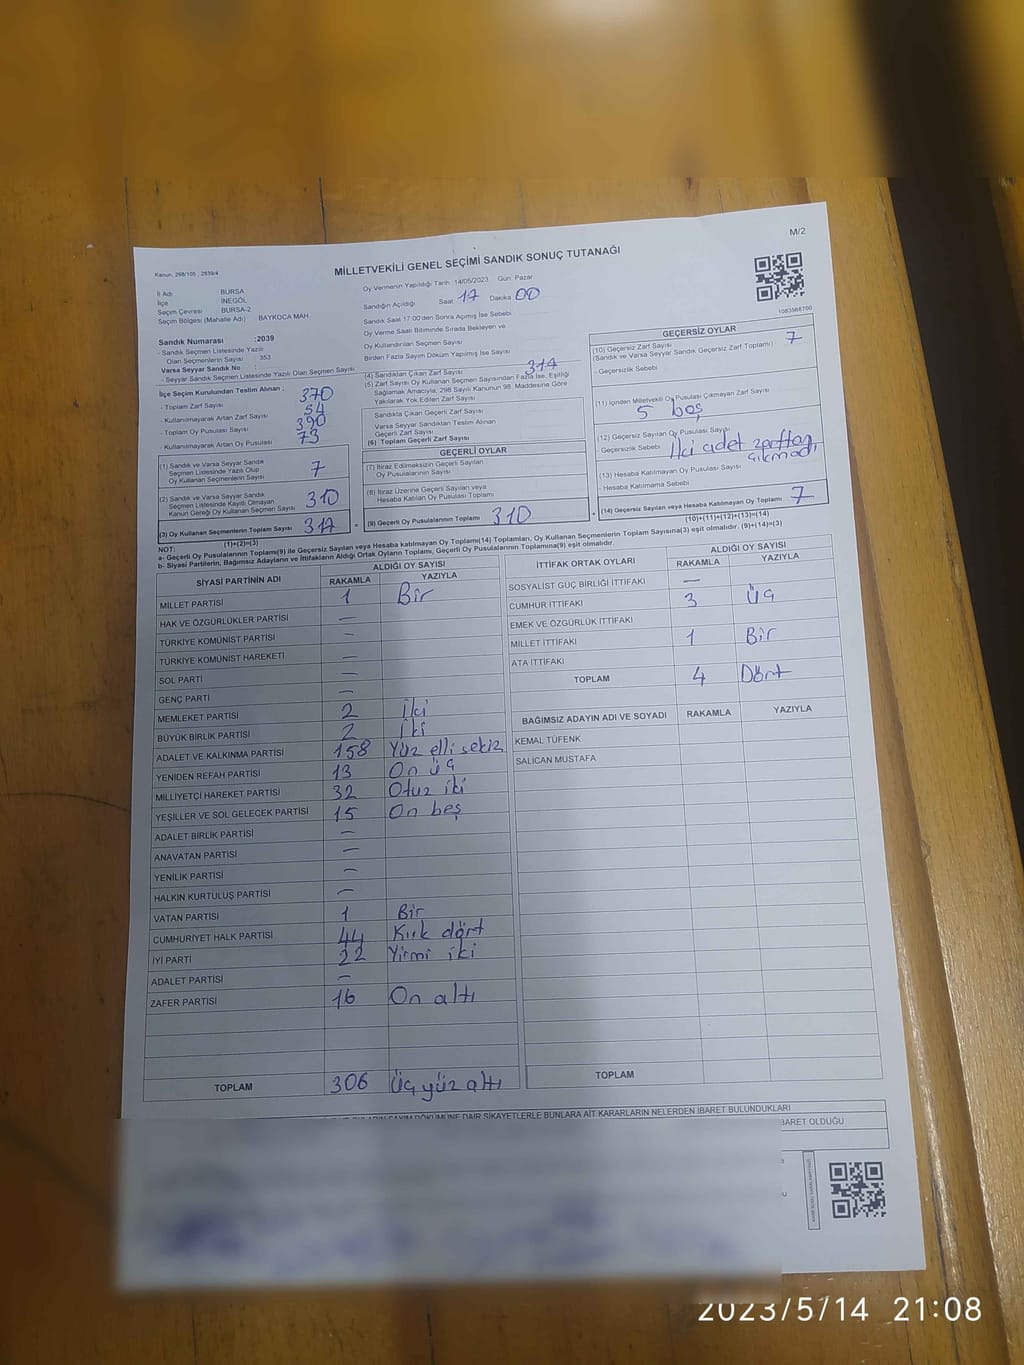 M/2
Kanun: 298/105 , 2839/4
MİLLETVEKİLİ GENEL SEÇİMİ SANDIK SONUÇ TUTANAĞI
İl Adı BURSA
İlçe İNEGÖL
Seçim Çevresi BURSA-2
Seçim Bölgesi (Mahalle Adı) BAYKOCA MAH
Sandık Numarası :2039
- Sandık Seçmen Listesinde Yazılı
Olan Seçmenlerin Sayısı : 353
Varsa Seyyar Sandık No :
- Seyyar Sandık Seçmen Listesinde Yazılı Olan Seçmen Sayısı
İlçe Seçim Kurulundan Teslim Alınan ;
- Toplam Zarf Sayısı 370
- Kullanılmayarak Artan Zarf Sayısı 54
- Toplam Oy Pusulası Sayısı 390
- Kullanılmayarak Artan Oy Pusulası 73
(1) Sandık ve Varsa Seyyar Sandık
Seçmen Listesinde Yazılı Olup
Oy Kullanan Seçmenlerin Sayısı 7
(2) Sandık ve Varsa Seyyar Sandık
Seçmen Listesinde Kayıtlı Olmayan
Kanun Gereği Oy Kullanan Seçmenlerin Sayısı 310
(3) Oy Kullanan Seçmenlerin Toplam Sayısı 317
(1)+(2)=(3)
Oy Vermenin Yapıldığı Tarih: 14/05/2023 Gün: Pazar
Sandığın Açıldığı Saat 17 Dakika 00
Sandık Saat 17:00'den Sonra Açılmış İse Sebebi
Oy Verme Saati Bitiminde Sırada Bekleyen ve
Oy Kullandırılan Seçmen Sayısı
Birden Fazla Sayım Döküm Yapılmış İse Sayısı
(4) Sandıktan Çıkan Zarf Sayısı
(5) Zarf Sayısı Oy Kullanan Seçmen Sayısından Fazla İse, Eşitliği
Sağlamak Amacıyla, 298 Sayılı Kanunun 98. Maddesine Göre
Yakılarak Yok Edilen Zarf Sayısı
Sandıkta Çıkan Geçerli Zarf Sayısı
Varsa Seyyar Sandıktan Teslim Alınan
Geçerli Zarf Sayısı
(6) Toplam Geçerli Zarf Sayısı
GEÇERLİ OYLAR
(7) İtiraz Edilmeksizin Geçerli Sayılan
Oy Pusulalarının Sayısı
(8) İtiraz Üzerine Geçerli Sayılan veya
Hesaba Katılan Oy Pusulası Toplamı
(9) Geçerli Oy Pusulalarının Toplamı 310
1083568700
GEÇERSİZ OYLAR
(10) Geçersiz Zarf Sayısı
(Sandık ve Varsa Seyyar Sandık Geçersiz Zarf Toplamı) : 7
- Geçersizlik Sebebi
(11) İçinden Milletvekili Oy Pusulası Çıkmayan Zarf Sayısı
5 boş
(12) Geçersiz Sayılan Oy Pusulası Sayısı
Geçersizlik Sebebi İki adet zarftan
çıkmadı
(13) Hesaba Katılmayan Oy Pusulası Sayısı
- Hesaba Katılmama Sebebi
(14) Geçersiz Sayılan veya Hesaba Katılmayan Oy Toplamı 7
(10)+(11)+(12)+(13)=(14)
NOT:
a- Geçerli Oy Pusulalarının Toplamı(9) ile Geçersiz Sayılan veya Hesaba katılmayan Oy Toplamı(14) Toplamları, Oy Kullanan Seçmenlerin Toplam Sayısına(3) eşit olmalıdır. (9)+(14)=(3)
b- Siyasi Partilerin, Bağımsız Adayların ve İttifakların Aldığı Ortak Oyların Toplamı, Geçerli Oy Pusulalarının Toplamına(9) eşit olmalıdır.
SİYASİ PARTİNİN ADI ALDIĞI OY SAYISI
RAKAMLA YAZIYLA
MİLLET PARTİSİ 1 Bir
HAK VE ÖZGÜRLÜKLER PARTİSİ —
TÜRKİYE KOMÜNİST PARTİSİ —
TÜRKİYE KOMÜNİST HAREKETİ —
SOL PARTİ —
GENÇ PARTİ —
MEMLEKET PARTİSİ 2 İki
BÜYÜK BİRLİK PARTİSİ 2 İki
ADALET VE KALKINMA PARTİSİ 158 Yüz elli sekiz
YENİDEN REFAH PARTİSİ 13 On üç
MİLLİYETÇİ HAREKET PARTİSİ 32 Otuz iki
YEŞİLLER VE SOL GELECEK PARTİSİ 15 On beş
ADALET BİRLİK PARTİSİ —
ANAVATAN PARTİSİ —
YENİLİK PARTİSİ —
HALKIN KURTULUŞ PARTİSİ —
VATAN PARTİSİ 1 Bir
CUMHURİYET HALK PARTİSİ 44 Kırk dört
İYİ PARTİ 22 Yirmi iki
ADALET PARTİSİ —
ZAFER PARTİSİ 16 On altı
TOPLAM 306 Üç yüz altı
İTTİFAK ORTAK OYLARI ALDIĞI OY SAYISI
RAKAMLA YAZIYLA
SOSYALİST GÜÇ BİRLİĞİ İTTİFAKI —
CUMHUR İTTİFAKI 3 Üç
EMEK VE ÖZGÜRLÜK İTTİFAKI
MİLLET İTTİFAKI 1 Bir
ATA İTTİFAKI
TOPLAM 4 Dört
BAĞIMSIZ ADAYIN ADI VE SOYADI RAKAMLA YAZIYLA
KEMAL TÜFENK
SALİCAN MUSTAFA
TOPLAM
SAYIM DÖKÜMÜNE DAİR ŞİKAYETLERLE BUNLARA AİT KARARLARIN NELERDEN İBARET BULUNDUKLARI
BARET OLDUĞU
2023/5/14 21:08